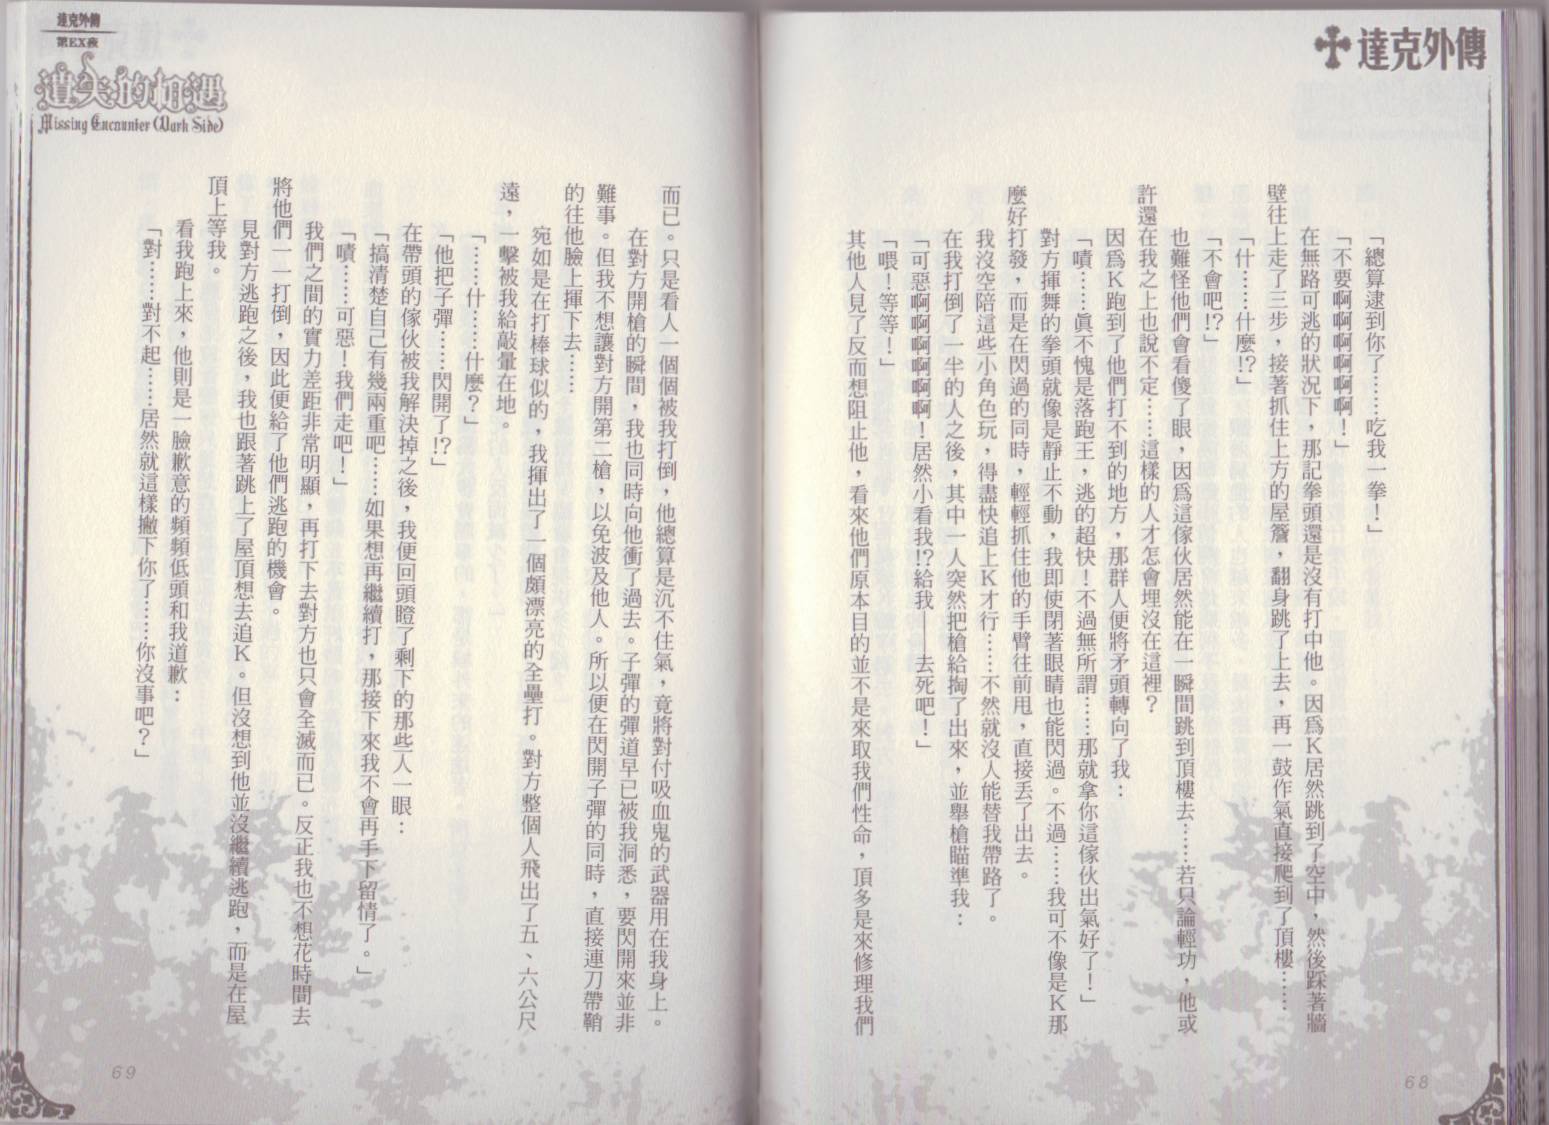 達克外傳
「總算逮到你了……吃我一拳！」
「不要啊啊啊啊啊啊！」
在無路可逃的狀況下，那記拳頭還是沒有打中他。因為K居然跳到了空中，然後踩著牆
壁往上走了三步，接著抓住上方的屋簷，翻身跳了上去，再一鼓作氣直接爬到了頂樓……
「什……什麼!?」
「不會吧!?」
也難怪他們會看傻了眼，因為這傢伙居然能在一瞬間跳到頂樓去……若只論輕功，他或
許還在我之上也說不定……這樣的人才怎會埋沒在這裡？
因為K跑到了他們打不到的地方，那群人便將矛頭轉向了我：
「嘖……真不愧是落跑王，逃的超快！不過無所謂……那就拿你這傢伙出氣好了！」
對方揮舞的拳頭就像是靜止不動，我即使閉著眼睛也能閃過。不過……我可不像是K那
麼好打發，而是在閃過的同時，輕輕抓住他的手臂往前甩，直接丟了出去。
我沒空陪這些小角色玩，得盡快追上K才行……不然就沒人能替我帶路了。
在我打倒了一半的人之後，其中一人突然把槍給掏了出來，並舉槍瞄準我：
「可惡啊啊啊啊啊啊！居然小看我!?給我——去死吧！」
「喂！等等！」
其他人見了反而想阻止他，看來他們原本目的並不是來取我們性命，頂多是來修理我們
68
達克外傳
第EX夜
遺失的相遇
Missing Encounter (Dark Side)
而已。只是看人一個個被我打倒，他總算是沉不住氣，竟將對付吸血鬼的武器用在我身上。
在對方開槍的瞬間，我也同時向他衝了過去。子彈的彈道早已被我洞悉，要閃開來並非
難事。但我不想讓對方開第二槍，以免波及他人。所以便在閃開子彈的同時，直接連刀帶鞘
的往他臉上揮下去……
宛如是在打棒球似的，我揮出了一個頗漂亮的全壘打。對方整個人飛出了五、六公尺
遠，一擊被我給敲暈在地。
「……什……什麼？」
「他把子彈……閃開了!?」
在帶頭的傢伙被我解決掉之後，我便回頭瞪了剩下的那些人一眼：
「搞清楚自己有幾兩重吧……如果想再繼續打，那接下來我不會再手下留情了。」
「嘖……可惡！我們走吧！」
我們之間的實力差距非常明顯，再打下去對方也只會全滅而已。反正我也不想花時間去
將他們一一打倒，因此便給了他們逃跑的機會。
見對方逃跑之後，我也跟著跳上了屋頂想去追K。但沒想到他並沒繼續逃跑，而是在屋
頂上等我。
看我跑上來，他則是一臉歉意的頻頻低頭和我道歉：
「對……對不起……居然就這樣撇下你了……你沒事吧？」
69